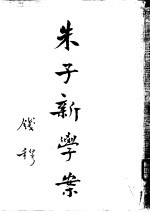 朱子新學案
錢穆